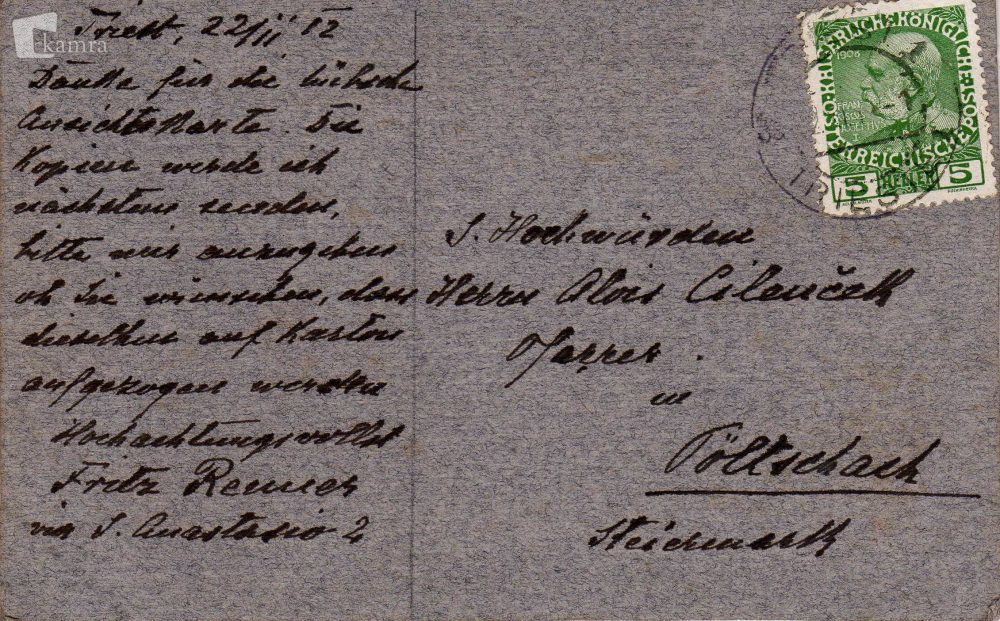 kamra
Triest, 22/II 12
Danke für die hübsche
Ansichtskarte. Die
Kopien werde ich
nächstens senden,
bitte mir anzugeben
ob Sie wünschen, dass
dieselben auf Karton
aufgezogen werden
Hochachtungsvollst
Fritz
via S. Anastasio 2
S. Hochwürden
Herrn Alois Cilenček
Pfarrer.
in
Pöltschach
Steiermark
KAISERLICHE KÖNIGLICHE
ÖSTERREICHISCHE
1908
5 HELLER 5